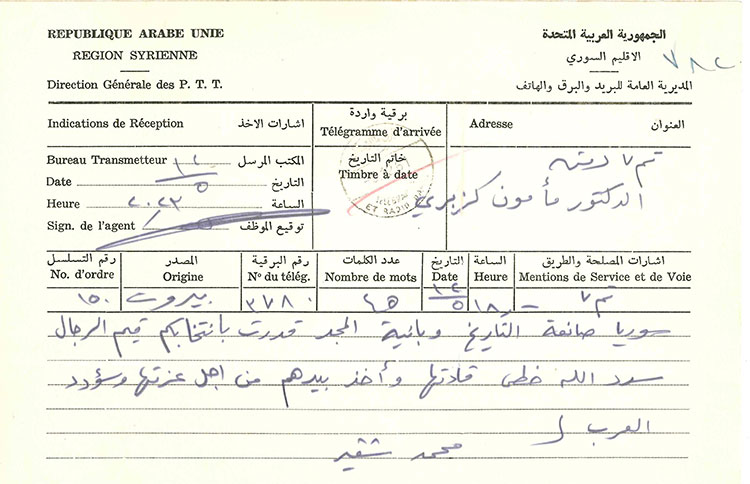 REPUBLIQUE ARABE UNIE
الجمهورية العربية المتحدة
REGION SYRIENNE
الاقليم السوري
Direction Générale des P. T. T.
المديرية العامة للبريد والبرق والهاتف
Indications de Réception اشارات الاخذ
برقية واردة
Télégramme d'arrivée
Adresse العنوان
Bureau Transmetteur المكتب المرسل
خاتم التاريخ
Timbre à date
Date التاريخ ١٤/٥
Heure الساعة ٢٠٢٣
Sign. de l'agent توقيع الموظف
الدكتور مأمون كزبري
رقم التسلسل
No. d'ordre
المصدر
Origine
رقم البرقية
Nº du télég.
عدد الكلمات
Nombre de mots
التاريخ
Date
الساعة
Heure
اشارات المصلحة والطريق
Mentions de Service et de Voie
١٥٠ بيروت ٣٧٨٠
سوريا صانعة التاريخ وبانية المجد قدرت بانتخابكم قيم الرجال
سدد الله خطى قادتها وأخذ بيدهم من اجل عزتها وسؤدد
العرب
محمد شقير